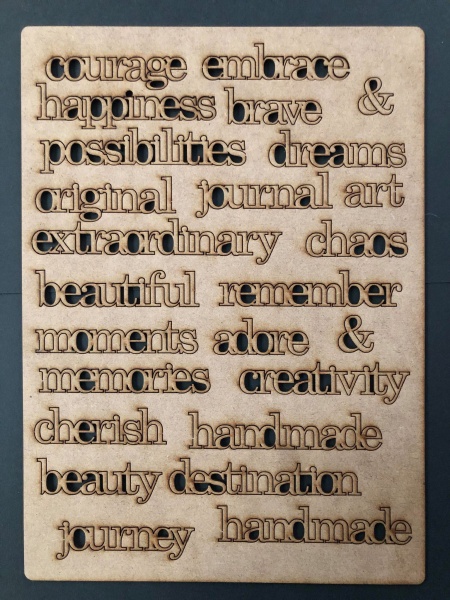 courage embrace
happiness brave &
possibilities dreams
original journal art
extraordinary chaos
beautiful remember
moments adore &
memories creativity
cherish handmade
beauty destination
journey handmade